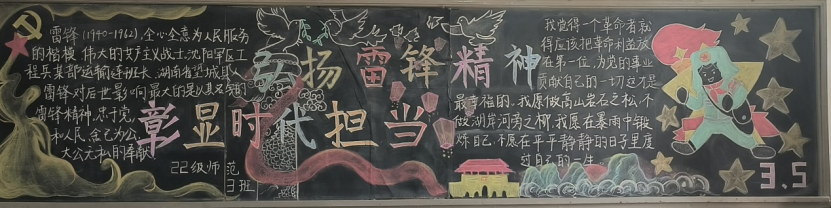 雷锋(1940-1962),全心全意为人民服务
的楷模,伟大的共产主义战士,沈阳军区工
程兵某部运输连班长,湖南省望城县人
雷锋对后世影响最大的是以其名字的
雷锋精神,忠于党
和人民、舍己为公、
大公无私的奉献
22级师范
3班
弘扬雷锋精神
彰显时代担当
我觉得一个革命者就
应该把革命利益放
在第一位,为党的事业
贡献自己的一切,这才是
最幸福的。我愿做高山岩石之松,不
做湖岸河旁之柳,我愿在暴雨中锻
炼自己,不愿在平平静静的日子里度
过自己的一生
3.5